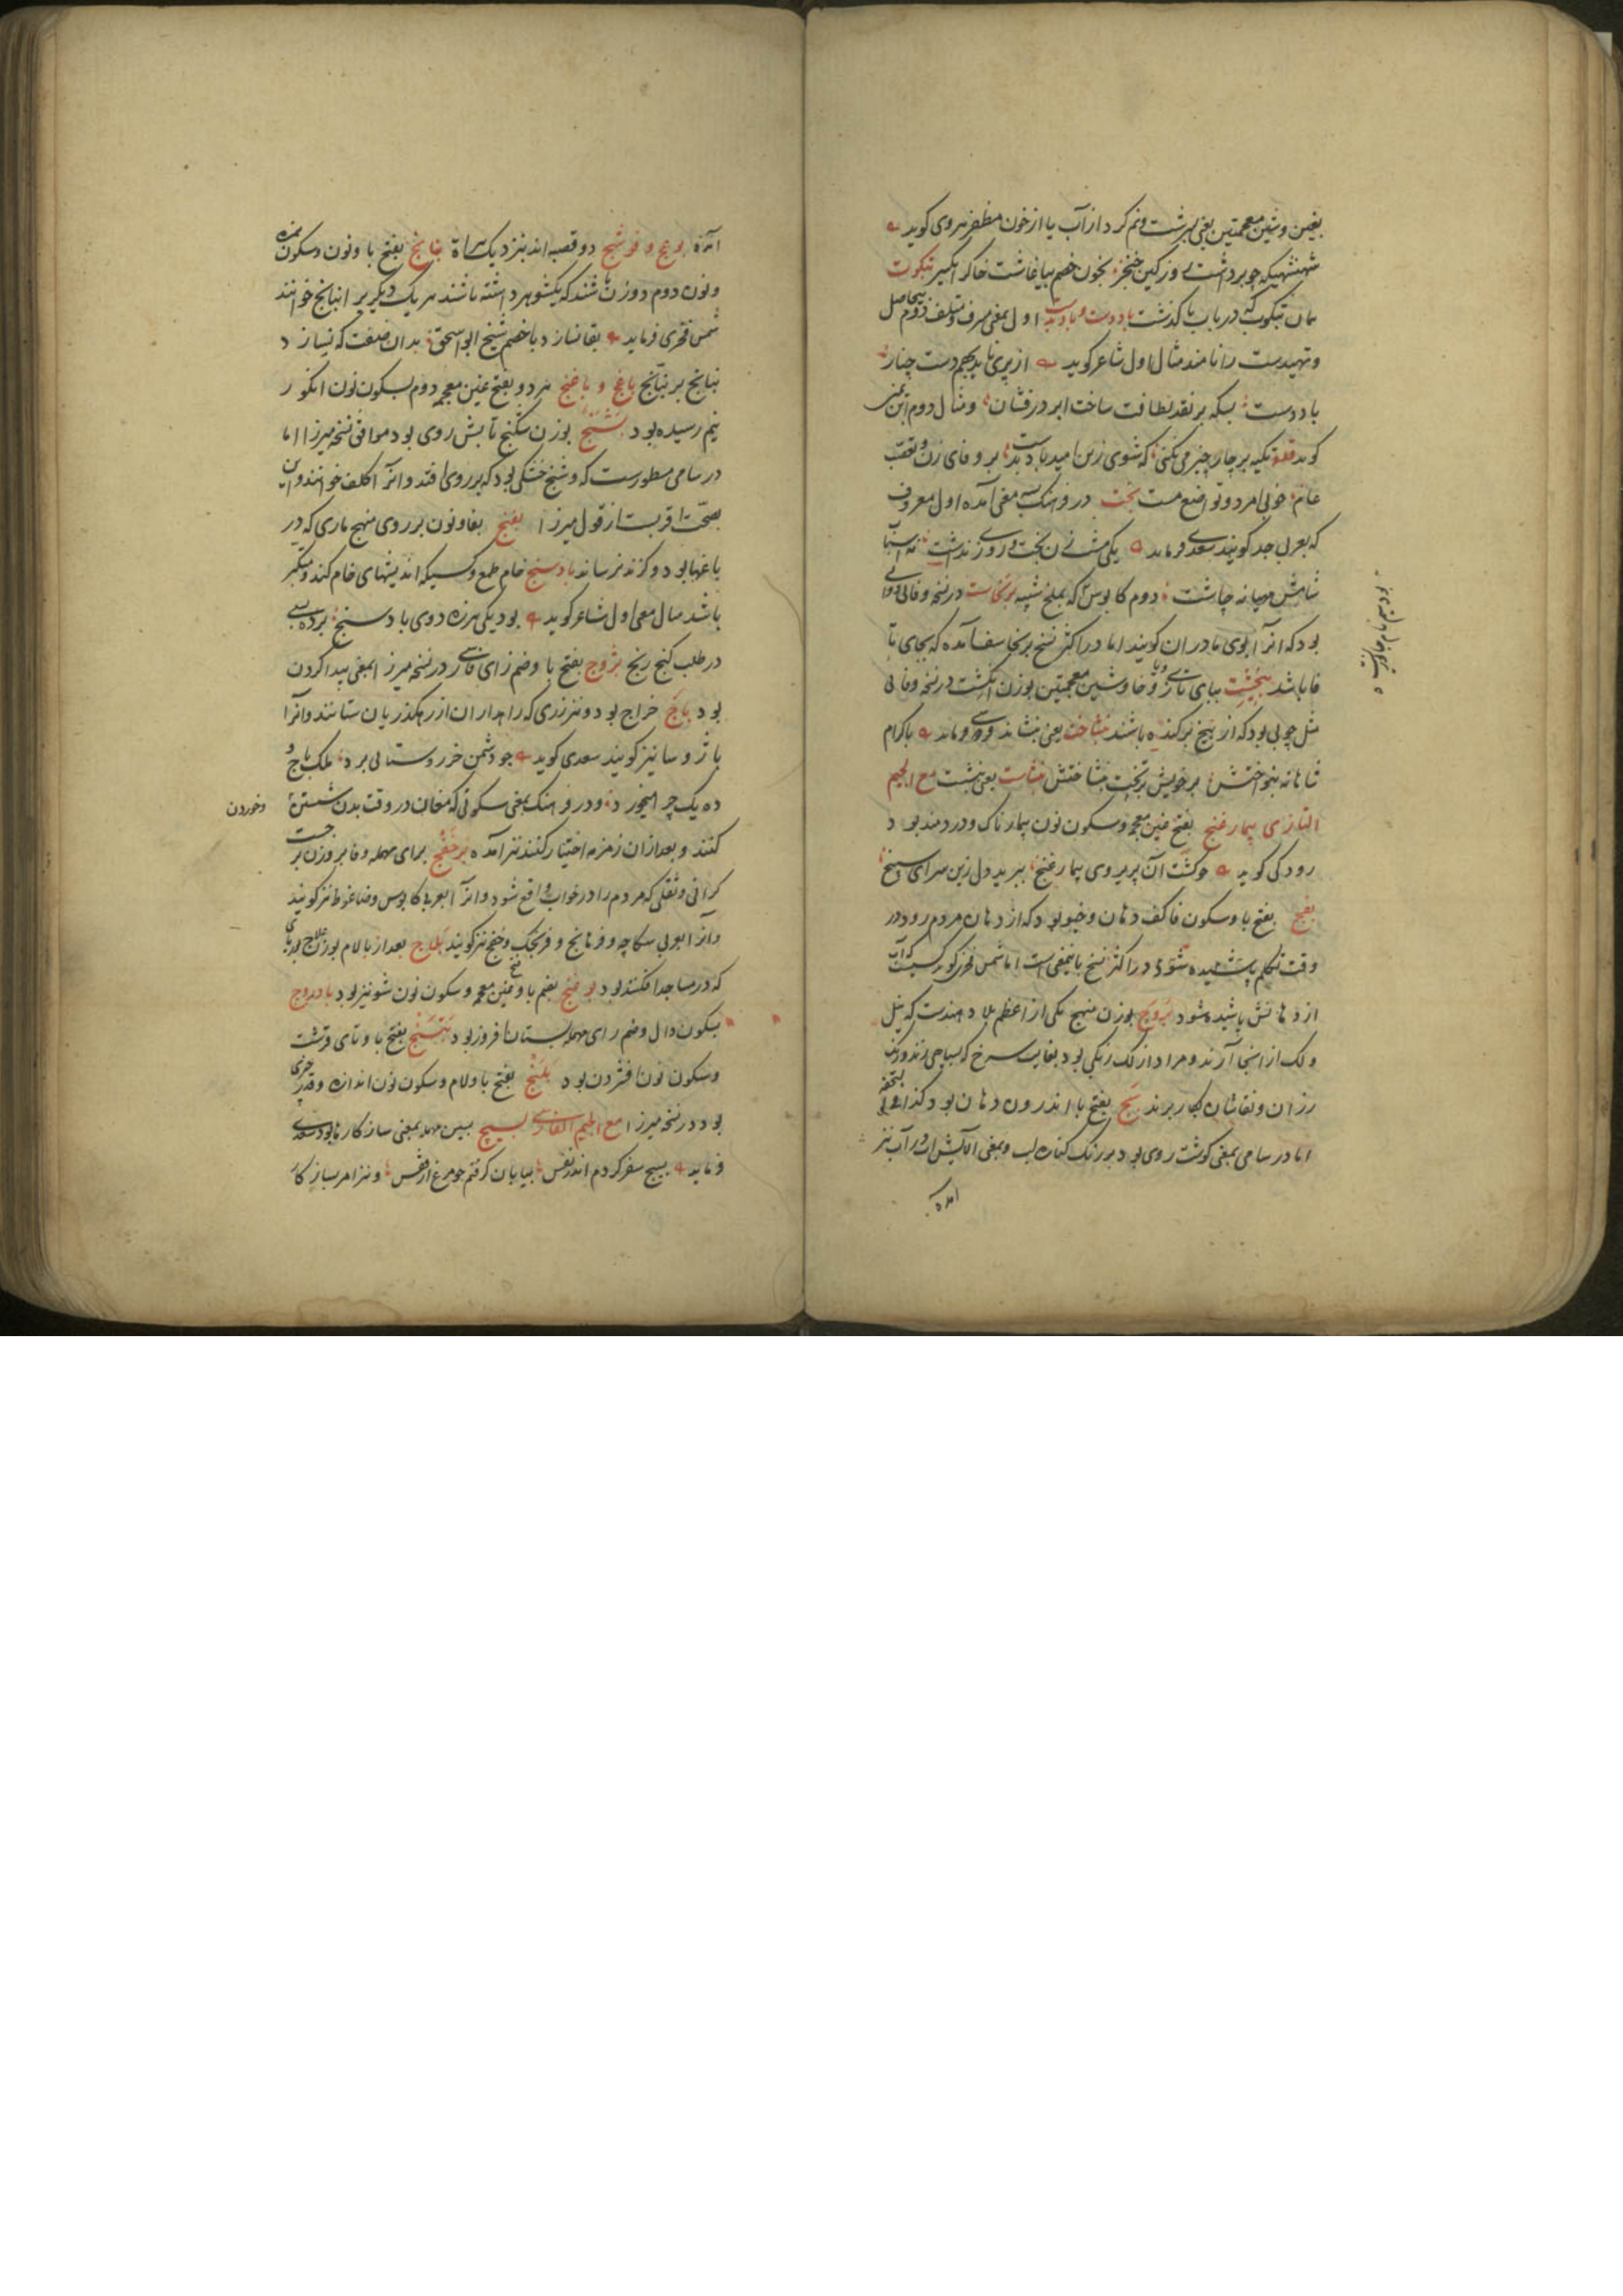 بغین و شین معجمتین یعنی بسرشت و نم کرد از آب یا از خون مظفر هروی گوید
شهنشهیکه چو برداشت روز کین خنجر بخون خصم بیاغاشت خاک اکسیر تنکوت
همان تنکوک که در باب با گذشت بادوست و بادبدست اول بمعنی مسرف و متلف دوم بیحاصل
و تهیدست را نامند مثال اول شاعر گوید از پری ناید بچم دست چنار
باددست بسکه بر نقد لطافت ساخت ابر درفشان و مثال دوم ابن یمین
گوید قطعه تکیه بر چار چیز می نکنی که شوی زین امید باد بدست بر وفای زن و تعصب
عام خوبی امرد و تواضع مست بخت در فرهنگ بسه معنی آمده اول معروف
که بعربی جد گویند سعدی فرماید یکی مشت زن بخت و روزی نداشت نه اسباب
شامش مهیا نه چاشت دوم کابوس که بملخ شبیه برنجاست در نسخه وفائی دوائی
بود که آنرا بوی مادران گویند اما در اکثر نسخ برنجاسف آمده که بجای تا
فا باشد بیخشت ببای تازی و یا و خا و شین معجمتین بوزن انگشت در نسخه وفائی
مثل چوبی بود که از بیخ برکنده باشند بنشاخت یعنی بنشاند فردوسی فرماید باکرام
شاهانه بنواختش بر خویش بر تخت بنشاختش بنشاست یعنی بنشست مع الجیم
التازی بیمارغنج بفتح غین معجمه و سکون نون بیمارناک و دردمند بود
رودکی گوید چو گشت آن پریروی بیمارغنج ببرید دل زین سرای سپنج
بفج بفتح با و سکون فا کف دهان و خیو بود که از دهان مردم رود در
وقت تکلم پاشیده شود در اکثر نسخ باینمعنی است اما شمس فخری گوید کسیست که آب
از دهانش پاشیده شود بروج بوزن منهج یکی از اعظم بلاد هندست که نیل
و لک از آنجا آرند و مراد از لک رنگی بود بغایت سرخ که سپاهی زنند و رنگ
رزان و نقاشان بکار برند بج بفتح با اندرون دهان بود کذا فی التحفه
اما در سامی بمعنی گوشت روی بود بورنک کناره لب و بمعنی آلایش و آب نیز
آمده
آمده بوغنج و فوشنج دو قصبه اند نزدیک هراة بنانج بفتح با و نون و سکون همزه
و نون دوم دو زن باشند که یکشوهر داشته باشند هر یک دیگریرا بنانج خوانند
شمس فخری فرماید بقا نسازد با خصم شیخ ابو اسحق بدان صفت که نسازد
بنانج بر بنانج باغج و باغنج هر دو بفتح غین معجمه دوم بسکون نون انگور
نیم رسیده بود بشنج بوزن شکنج تابش روی بود موافق نسخه میرزا اما
در سامی مسطورست که وشنج خشکی بود که بر روی افتد و آنرا کلف خوانند و این
بصحت اقربست از قول میرزا بفنج بفا و نون بر روی منهج ماری که در
باغها بود و گزند نرساند بادسنج خام طمع و کسیکه اندیشهای خام کند و متکبر
باشد مثال معنی اول شاعر گوید بود یکی هرزه دوی بادسنج برده بسی
در طلب گنج رنج بژوج بفتح با و ضم زای فارسی در نسخه میرزا بمعنی پیدا کردن
بود باج خراج بود و نیز زری که راهداران از رهگذریان ستانند و آنرا
باژ و سا نیز گویند سعدی گوید چو دشمن خر روستائی برد ملک باج و
ده یک چرا میخورد و در فرهنک بمعنی سکوتی که مغان در وقت بدن شستن و
و خوردن
کنند و بعد از آن زمزمه اختیار کنند نیز آمده برخفج برای مهمله و فا بر وزن برجست
گرانی و ثقلی که مردم را در خواب واقع شود و آنرا بعربی کابوس و ضاغوط نیز گویند
و آنرا بعربی سکاچه و فرهانج و فرنجک و خفج نیز گویند بلاج بعد از با لام بوزن علاج بوریائی
که در مساجد افکنند بود بوغنج بضم با و فتح غین معجمه و سکون نون شونیز بود بادروج
بسکون دال و ضم رای مهمله بستان افروز بود بتنج بفتح با و تای قرشت
و سکون نون افشردن بود بلنج بفتح با و لام و سکون نون اندازه و قدر چیزی
بود در نسخه میرزا مع الجیم الفارسی بسیچ بسین مهمله بمعنی ساز کارها بود سعدی
فرماید بسیچ سفر کردم اندر نفس بیابان گرفتم چو مرغ از قفس و نیز امر بساز کار